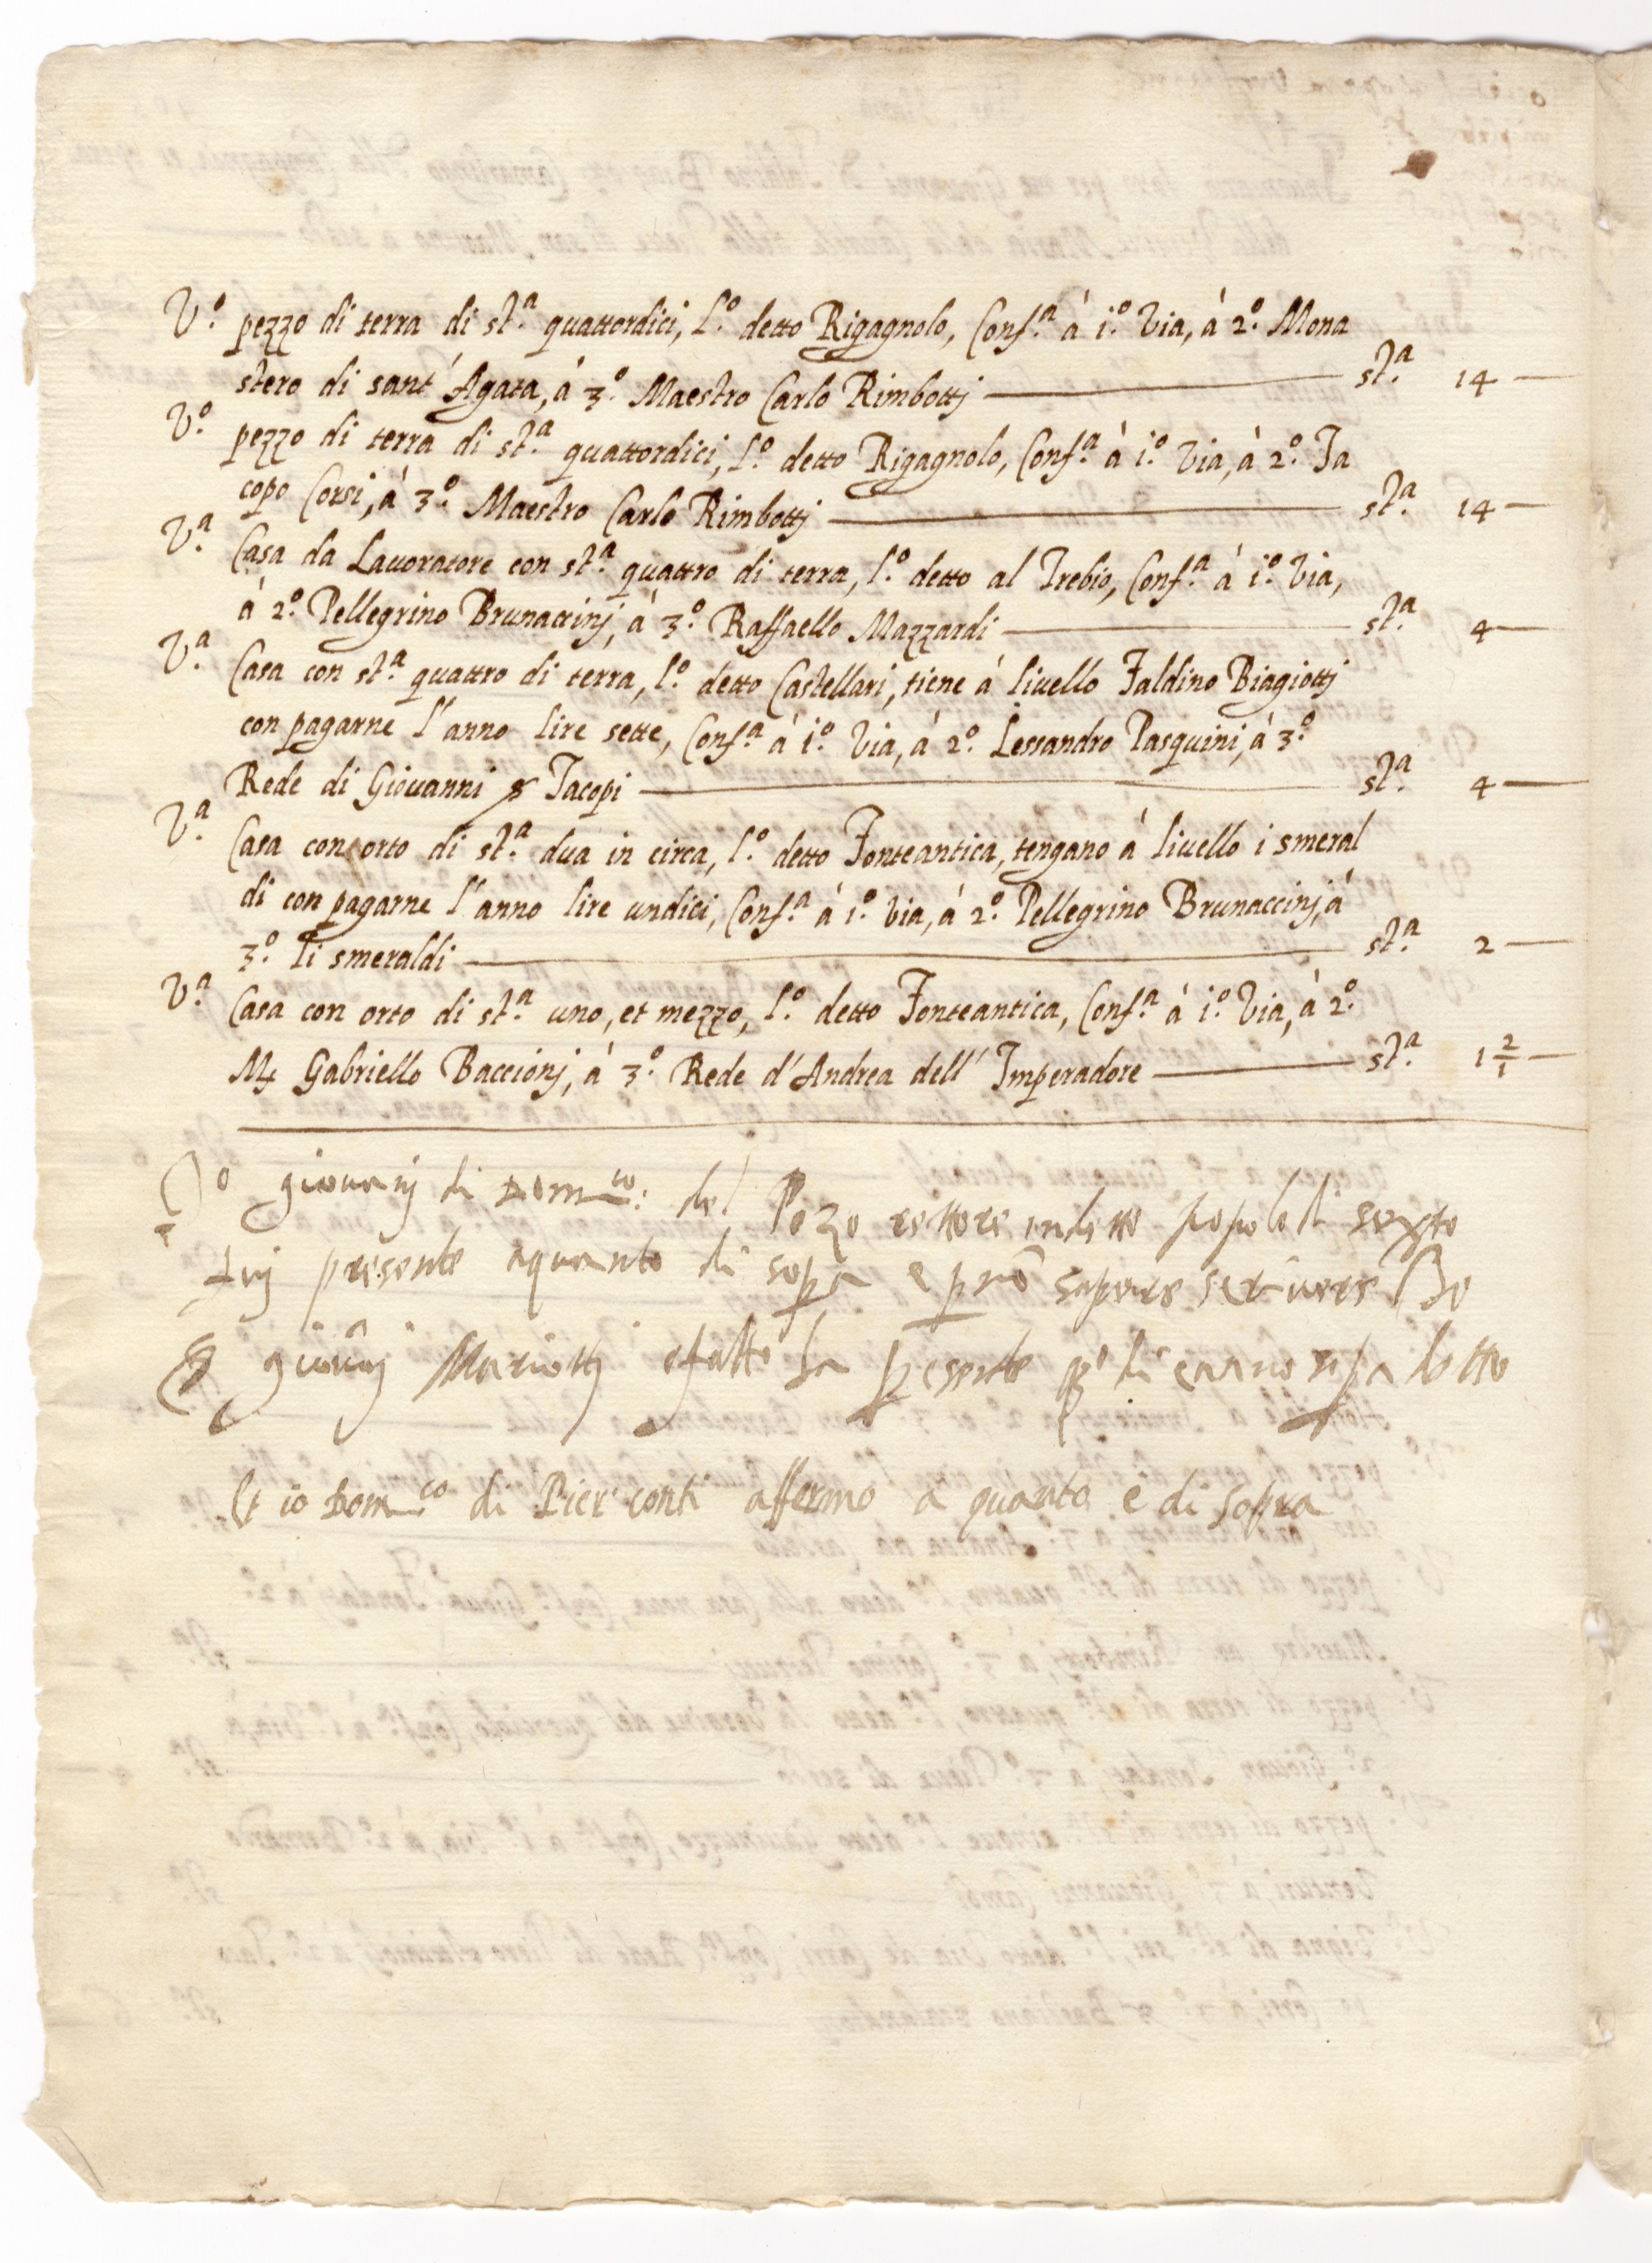 Vº. pezzo di terra di stª. quattordici, lº. detto Rigagnolo, Confª. à iº. Via, à 2º. Mona
stero di sant' Agata, à 3º. Maestro Carlo Rimbottj — stª. 14 —
Vº. pezzo di terra di stª. quattordici, lº. detto Rigagnolo, Confª. à iº. Via, à 2º. Ja
copo Corsi, à 3º. Maestro Carlo Rimbottj — stª. 14 —
Vª. Casa da Lavoratore con stª. quattro di terra, lº. detto al Trebio, Confª. à iº. Via,
à 2º. Pellegrino Brunaccinj, à 3º. Raffaello Mazzardi — stª. 4 —
Vª. Casa con stª. quattro di terra, lº. detto Castellari, tiene à livello Faldino Biagiottj
con pagarne l'anno lire sette, Confª. à iº. Via, à 2º. Lessandro Pasquini, à 3º.
Rede di Giovanni Jacopi — stª. 4 —
Vª. Casa con orto di stª. dua in circa, lº. detto Fonteantica, tengano à livello i smeral
di con pagarne l'anno lire undici, Confª. à iº. via, à 2º. Pellegrino Brunaccinj, à
3º. li smeraldi — stª. 2 —
Vª. Casa con orto di stª. uno, et mezzo, lº. detto Fonteantica, Confª. à iº. Via, à 2º.
Mº Gabriello Baccionj, à 3º. Rede d'Andrea dell' Imperadore — stª. 1 2/1 —
giovanj di Domco: del Pozo rettore in detto popolo di sexto
fuj presente aquanto di sopra e p nō sapere scrivere
giovāj Mariottj a fatto la presente
Et io Domco di Pier conti affermo a quanto è di sopra